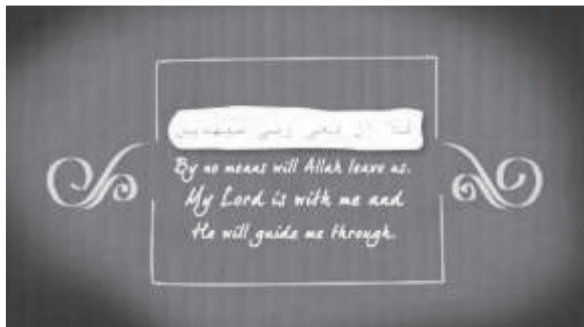 By no means will Allah leave us.
My Lord is with me and
He will guide me through.